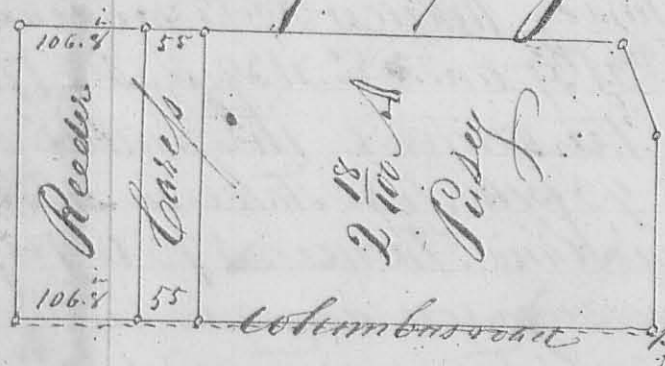 106.8 55
Reeder
Cases
2 18/100 A
Pusey
106.8 55
Columbus road